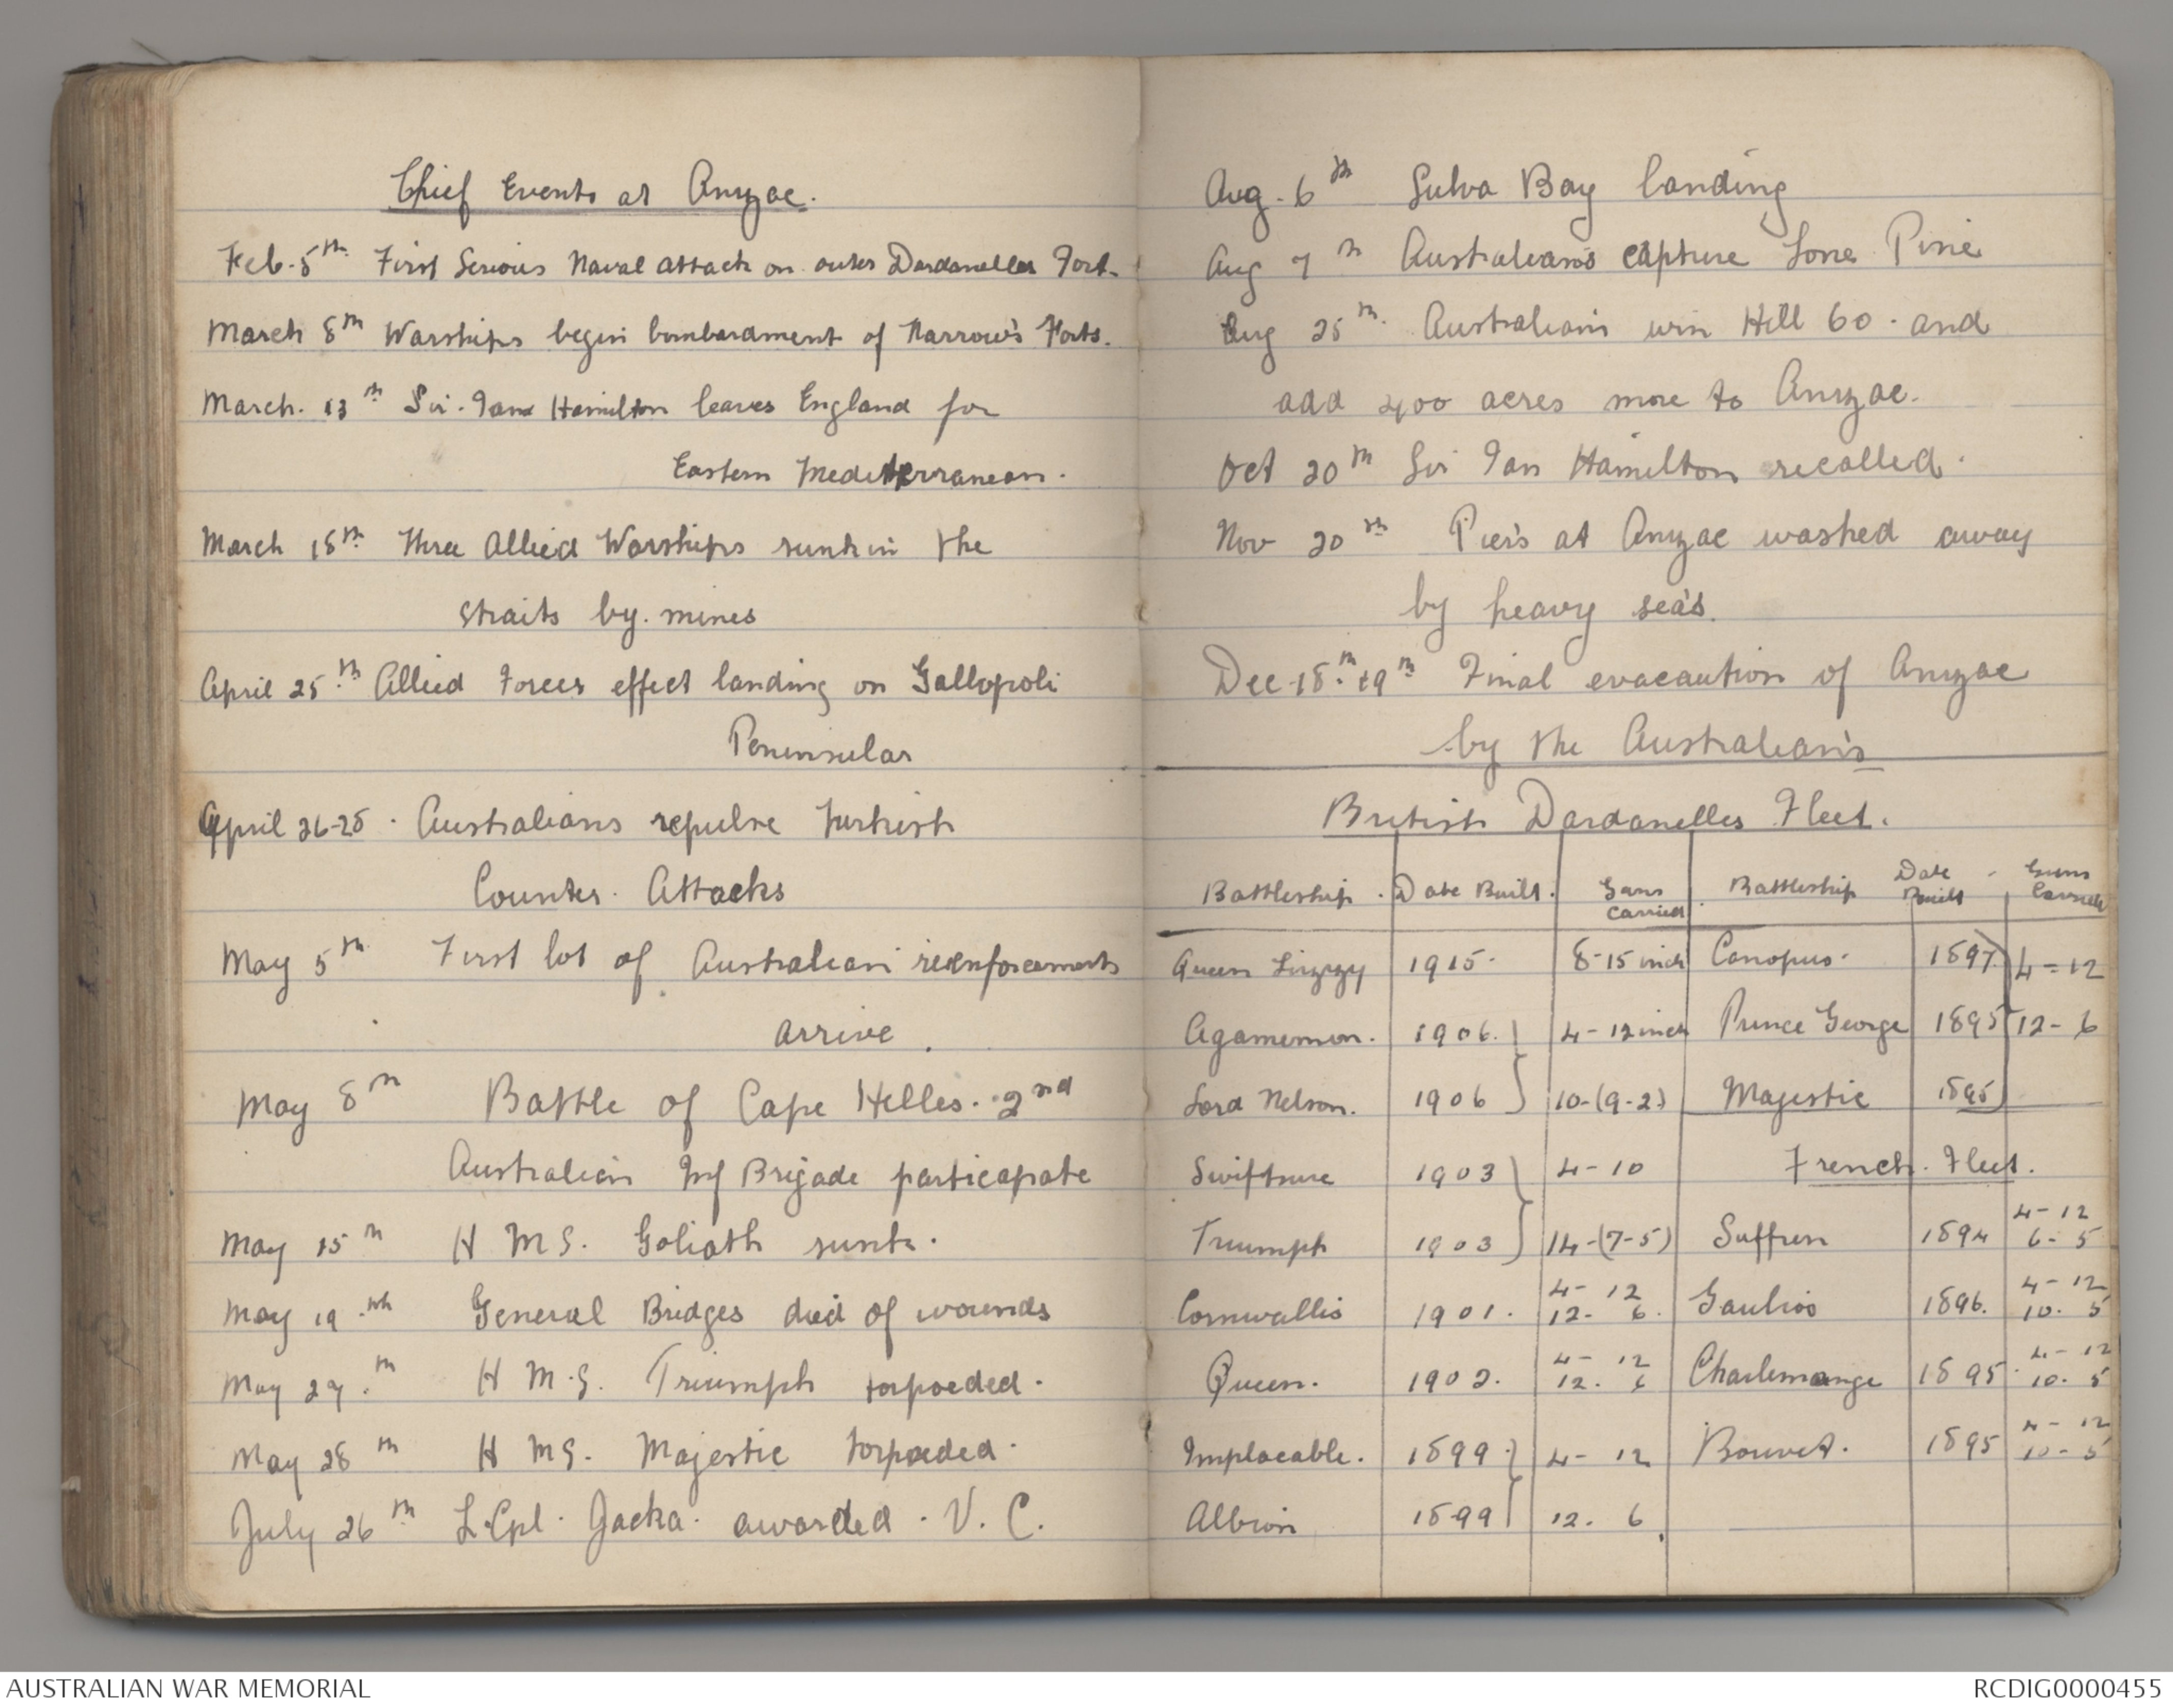 Chief Events at Anzac.
Feb. 5th. First Serious Naval attack on outer Dardanelles Fort.
March 8th Warships begin bombardment of Narrow's Forts.
March. 13th Sir. Ian Hamilton leaves England for
Eastern Mediterranean.
March 18th. Three Allied Warships sunk in the
straits by. mines
April 25.th Allied Forces effect landing on Gallopoli
Peninsular
April 26-28. Australians repulse Turkish
Counter. Attacks
May 5th First lot of Australian reenforcements
arrive.
May 8th Battle of Cape Helles. 2nd
Australian Inf Brigade particapate
May 15th H M S. Goliath sunk.
May 19.th General Bridges died of wounds
May 27.th H M.S. Triumph torpoeded.
May 28th H MS. Majestic torpoeded.
July 26th L.Cpl. Jacka. awarded. V. C.
Aug. 6th Sulva Bay landing
Aug 7th Australians capture Lone Pine
Aug 25th. Australians win Hill 60. and
add 400 acres more to Anzac.
Oct 20th Sir Ian Hamilton recalled.
Nov 20th Piers at Anzac washed away
by heavy sea's.
Dec 18.th 19th Final evacaution of Anzac
by the Australian's
British Dardanelles Fleet.
Battleship. Date Built. Guns Carried. Battleship Date Built Guns Carried
Queen Lizzy 1915. 8-15 inch Canopus. 1897 4-12
Agamemnon. 1906. 4-12 inch Prince George 1895 12-6
Lord Nelson. 1906 10-(9-2) Majestic 1895
Swiftsure 1903 4-10 French. Fleet.
Triumph 1903 14-(7-5) Suffren 1894 4-12 6-5
Cornwallis 1901. 4-12 12-6. Gaulios 1896. 4-12 10.5
Queen. 1902. 4-12 12.6 Charlemange 1895. 4-12 10.5
Implacable. 1899 4-12 Bouvet. 1895 4-12 10-5
Albion 1899 12.6.
AUSTRALIAN WAR MEMORIAL
RCDIG0000455